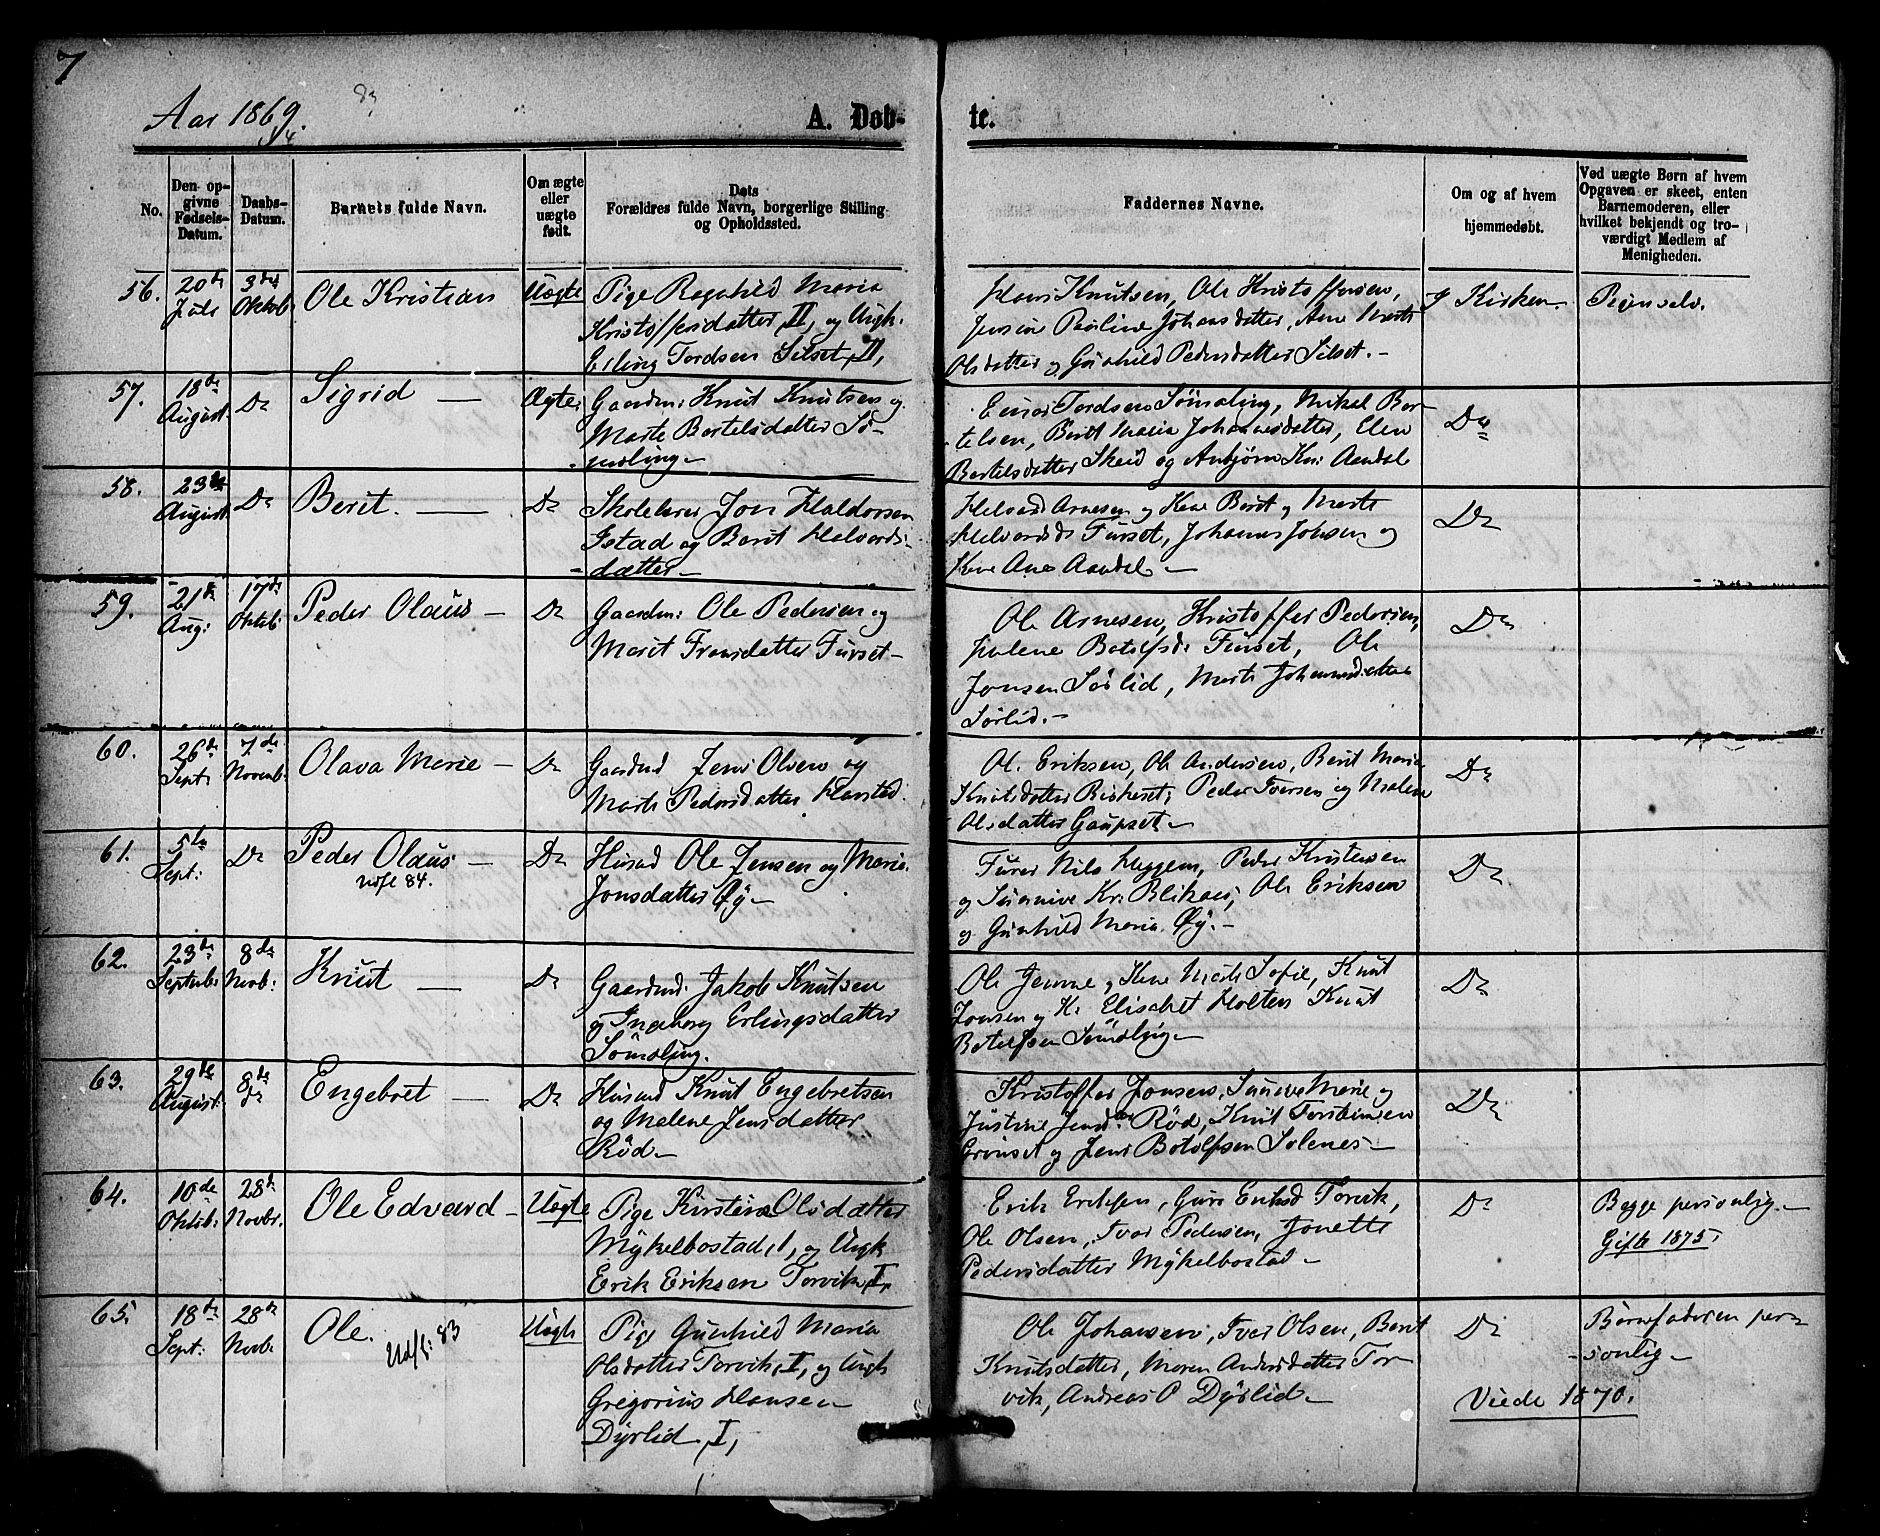 7
Aar 1869.
A. Døb-
te.
No.
Den op-
givne
Fødsels-
Datum.
Daabs-
Datum.
Barnets fulde Navn.
Om ægte
eller
uægte
født.
Dets
Forældres fulde Navn, borgerlige Stilling
og Opholdssted.
Faddernes Navne.
Om og af hvem
hjemmedøbt.
Ved uægte Børn af hvem
Opgaven er skeet, enten
Barnemoderen, eller
hvilket bekjendt og tro-
værdigt Medlem af
Menigheden.
56.
20de
Juli
3die
Oktob
Ole Kristian
Uægte
Pige Ragnhild Maria
Kristoffersdatter, II, og Ungk.
Erling Tordsen Silset, II,
Hans Knutsen, Ole Kristoffersen,
Pauline Johansdatter, Ane Marte
Olsdatter og Gunhild Pedersdatter Silset.-
I Kirken
Pigen selv.
57.
18de
August.
Do
Sigrid —
Ægte
Gaardm: Knut Knutsen og
Marte Bertelsdatter Sø-
mdling-
Einar Tordsen Sømdling, Mikal Ber-
telsen, Berit Maria Johannesdatter, Elen
Bertelsdatter Skeid og Anbjørn Kn: Aandal
Do
58.
23de
August.
Do
Berit. —
Do
Skolelærer Jon Haldorsen
Istad og Berit Halvords-
datter-
Halvord Arnesen og Kone Berit og Marte
Halvordsd: Furset, Johannes Johnsen og
Kone Ane Aandal -
Do
59.
21de
Aug:
17de
Oktob:
Peder Olaus —
Do
Gaardm: Ole Pedersen og
Marit Fransdatter Furset-
Ole Arnesen, Kristoffer Pedersen,
Malene Botolfsd: Furset, Ole
Jonsen Sørlid, Marte Johannesdatter
Sørlid.-
Do
60.
26de
Sept:
7de
Novemb:
Olava Marie -
Do
Gaardmd Jens Olsen og
Marte Pedersdatter Harstad.
Ole Eriksen, Ole Andersen, Berit Maria
Knutsdatter Birkeset, Peder Iversen og Malene
Olsdatter Gaupset.-
Do
61.
5te
Sept:
Do
Peder Olaus —
Udfl 84.
Do
Husmd Ole Jensen og Maria
Jonsdatter Øy-
Furer Nils Heggem, Peder Kristensen
og Sunnive Kr: Blikaas, Ole Eriksen
og Gunhild Maria Øy.-
Do
62.
23de
Septemb:
8de
Novb:
Knut —
Do
Gaardmd: Jakob Knutsen
og Ingeborg Erlingsdatter
Sømdling.
Ole Jenme og Kone Marte Sofie, Knut
Jonsen og K: Elisabet Holten Knut
Botolfsen Sømdling-
Do
63.
29de
August.
8de
Do
Engebret —
Do
Husmd Knut Engebretsen
og Malene Jensdatter
Rød-
Kristoffer Jonsen, Sunneva Marie og
Justine Jensdtr Rød, Knut Torsteinsen
Grønset og Jens Botolfsen Solenes-
Do
64.
10de
Oktob:
28de
Novbr.
Ole Edvard -
Uægte
Pige Kirstina Olsdatter
Mykelbostad, I, og Ungk
Erik Eriksen Torvik, I.
Erik Eriksen, Guri Eriksd Torvik,
Ole Olsen, Ivar Pedersen, Jonette
Pedersdatter Mykelbostad-
Do
Begge personlig.-
Gifte 1875.
65.
18de
Sept:
28de
Novb.
Ole.
Udfl: 83
Uægte
Pige Gunhild Maria
Olsdatter Torvik, I, og Ungk
Gregorius Hansen
Dyrlid, I,
Ole Johansen, Ivar Olsen, Berit
Knutsdatter, Maren Andersdatter Tor-
vik, Andreas P Dyrlid-
Do
Barnefaderen per-
sonlig-
Viede 1870.